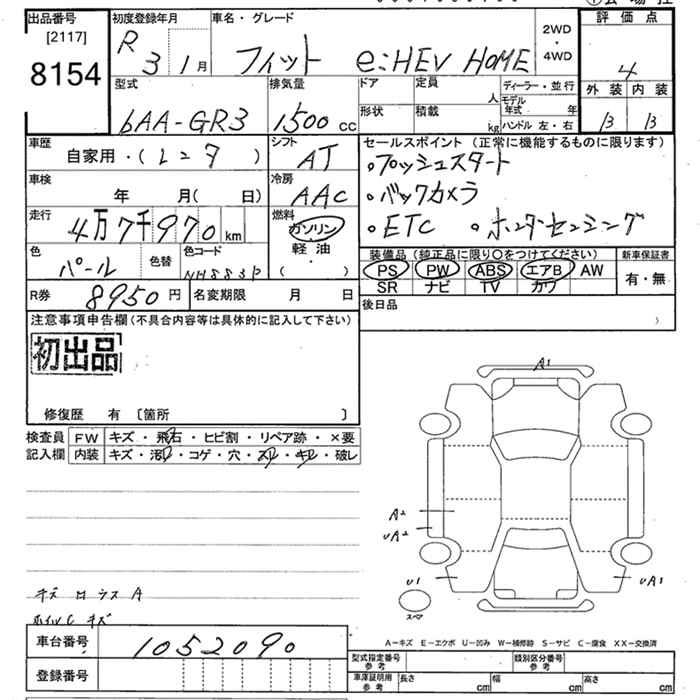 出品番号
[2117]
8154
初度登録年月
R 3 1月
車名・グレード
フィット e:HEV HOME
2WD
・
4WD
評価点
4
外装 内装
B B
型式
6AA-GR3
排気量
1500 cc
ドア
定員
人
形状
積載
kg
ディーラー・並行
モデル年式 年
ハンドル 左・右
車歴
自家用・(レンタ)
シフト
AT
車検
年 月(日)
冷房
AAC
走行
4万7千970 km
燃料
ガソリン
軽油
( )
色
パール
色替
色コード
NH883P
セールスポイント(正常に機能するものに限ります)
・プッシュスタート
・バックカメラ
・ETC ・ホンダセンシング
装備品(純正品に限り○をつけてください)
PS PW ABS エアB AW
SR ナビ TV カワ
新車保証書
有・無
R券 8950円
名変期限 月 日
後日品
注意事項申告欄(不具合内容等は具体的に記入して下さい)
初出品
修復歴 有 〔箇所 〕
検査員 FW キズ・飛石・ヒビ割・リペア跡・×要
記入欄 内装 キズ・汚れ・コゲ・穴・スレ・キレ・破レ
A1
A2
UA2
U1
UA1
スペア
キズ A
ホイルC キズ
車台番号 1052090
登録番号
A-キズ E-エクボ U-凹み W-補修跡 S-サビ C-腐食 XX-交換済
型式指定番号 参考
類別区分番号 参考
車庫証明用 参考
長さ cm 幅 cm 高さ cm